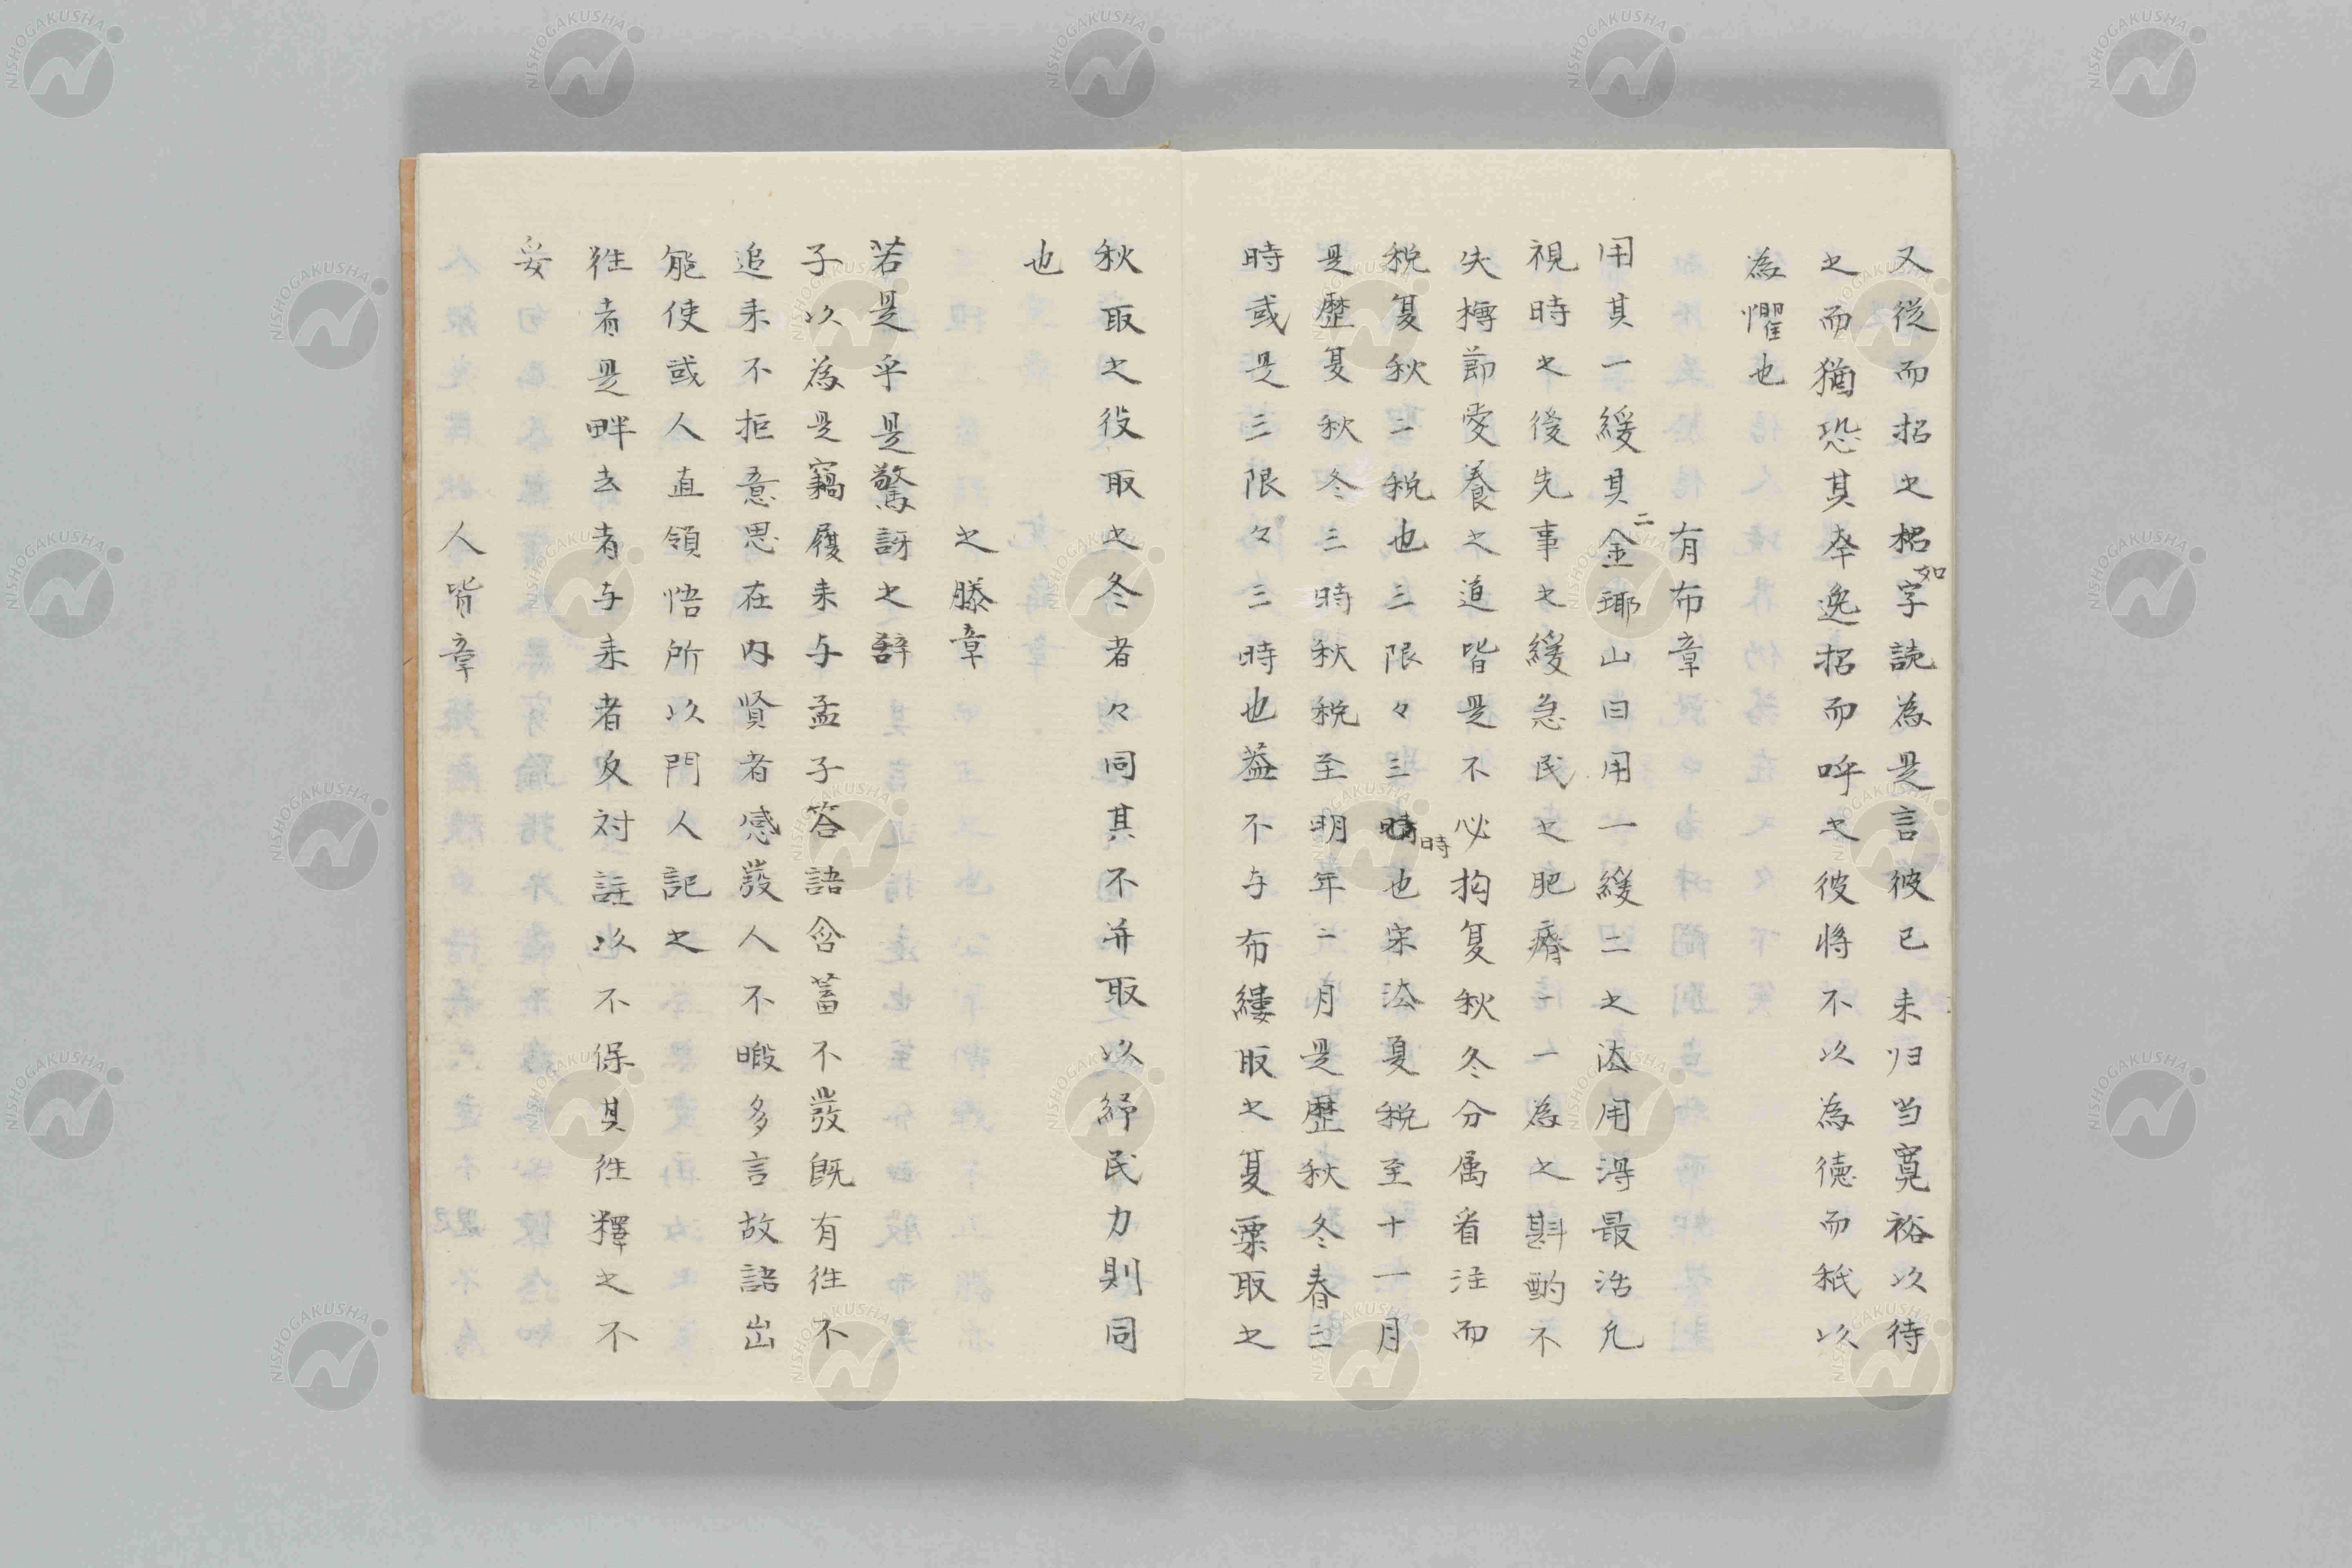 又從而招之招如字読為是言彼已未归当寛裕以待
之而猶恐其奔逸招而呼之彼将不以為徳而秖以
為懼也
有布章
用其一緩其二金瑘山曰用一緩二之法用得最活凢
視時之後先事之緩急民之肥瘠一一為之斟酌不
失樽節愛養之道皆是不必拘夏秋冬分属看注而
税夏秋二税也三限々三時也宋法夏税至十一月
是歴夏秋冬三時秋税至明年二月是歴秋冬春三
時或是三限々三時也葢不与布縷取之夏粟取之
秋取之役取之冬者々同其不并取以紓民力則同
也
之滕章
若是乎是驚訝之辞
子以為是竊履来与孟子答語含蓄不發既有往不
追来不拒意思在内賢者感發人不暇多言故語出
能使或人直領悟所以門人記之
往者是畔去者与来者反対註以不保其往釋之不
妥
人皆章
NISHOGAKUSHA